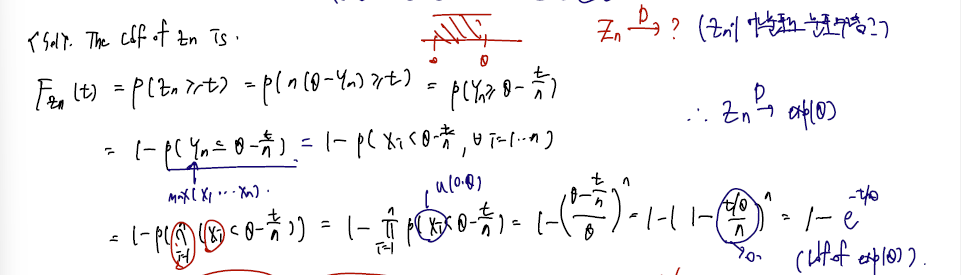 <Sol>. The cdf of Zn is.
Zn →D ? (Zn의
F_Zn (t) = P(Zn ≥ t) = P(n(θ-Yn) ≥ t) = P(Yn ≥ θ - t/n)
∴ Zn →D exp(θ)
= 1 - P(Yn ≤ θ - t/n) = 1 - P(Xi < θ - t/n, ∀ i=1...n)
max(X1 ... Xn).
U(0.θ)
= 1 - P(∩_{i=1}^{n} (Xi < θ - t/n)) = 1 - ∏_{i=1}^{n} P(Xi < θ - t/n) = 1 - ((θ - t/n)/θ)^n = 1 - (1 - (t/θ)/n)^n = 1 - e^{-t/θ}
(cdf of exp(θ)).